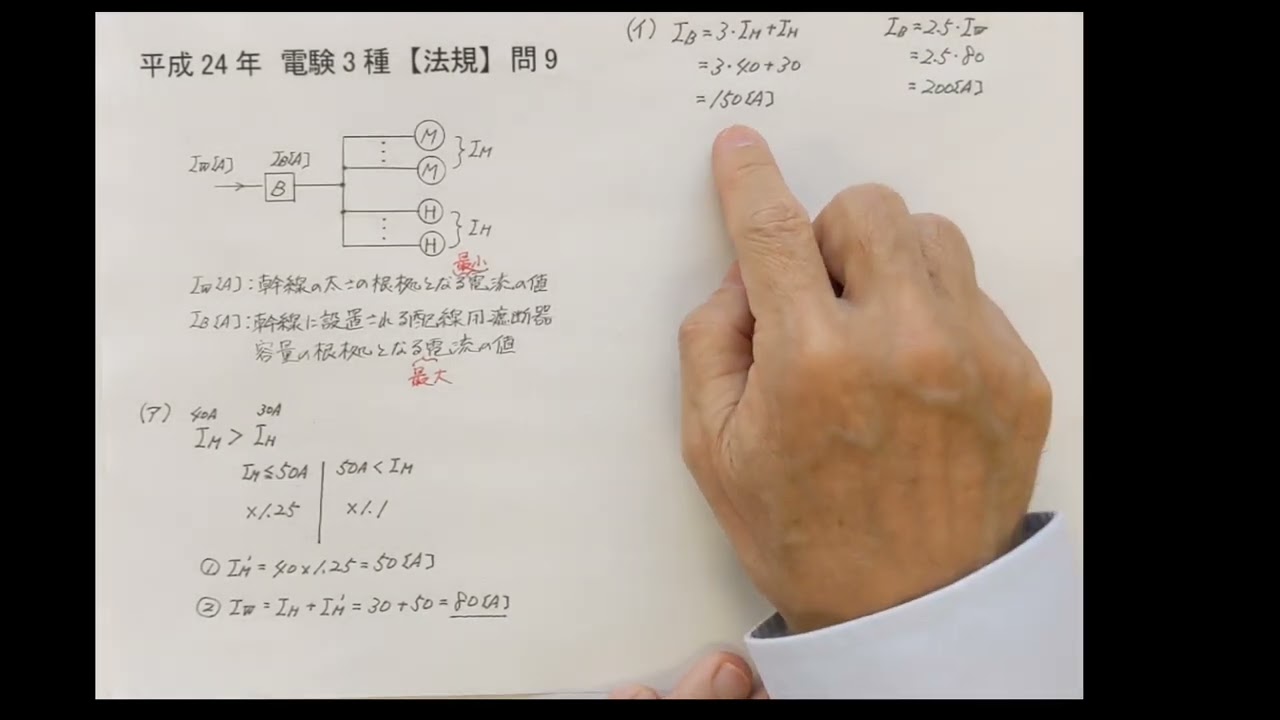 平成24年 電験3種【法規】問9
I_W[A] I_B[A]
B
M
M
} I_M
H
H
} I_H
最小
I_W[A]:幹線の太さの根拠となる電流の値
I_B[A]:幹線に設置される配線用遮断器
容量の根拠となる電流の値
最大
(ア) 40A 30A
I_M > I_H
I_M ≦ 50A | 50A < I_M
×1.25 ×1.1
① I_M' = 40×1.25 = 50[A]
② I_W = I_H + I_M' = 30+50 = 80[A]
(イ) I_B = 3・I_M + I_H
= 3・40+30
= 150[A]
I_B = 2.5・I_W
= 2.5・80
= 200[A]